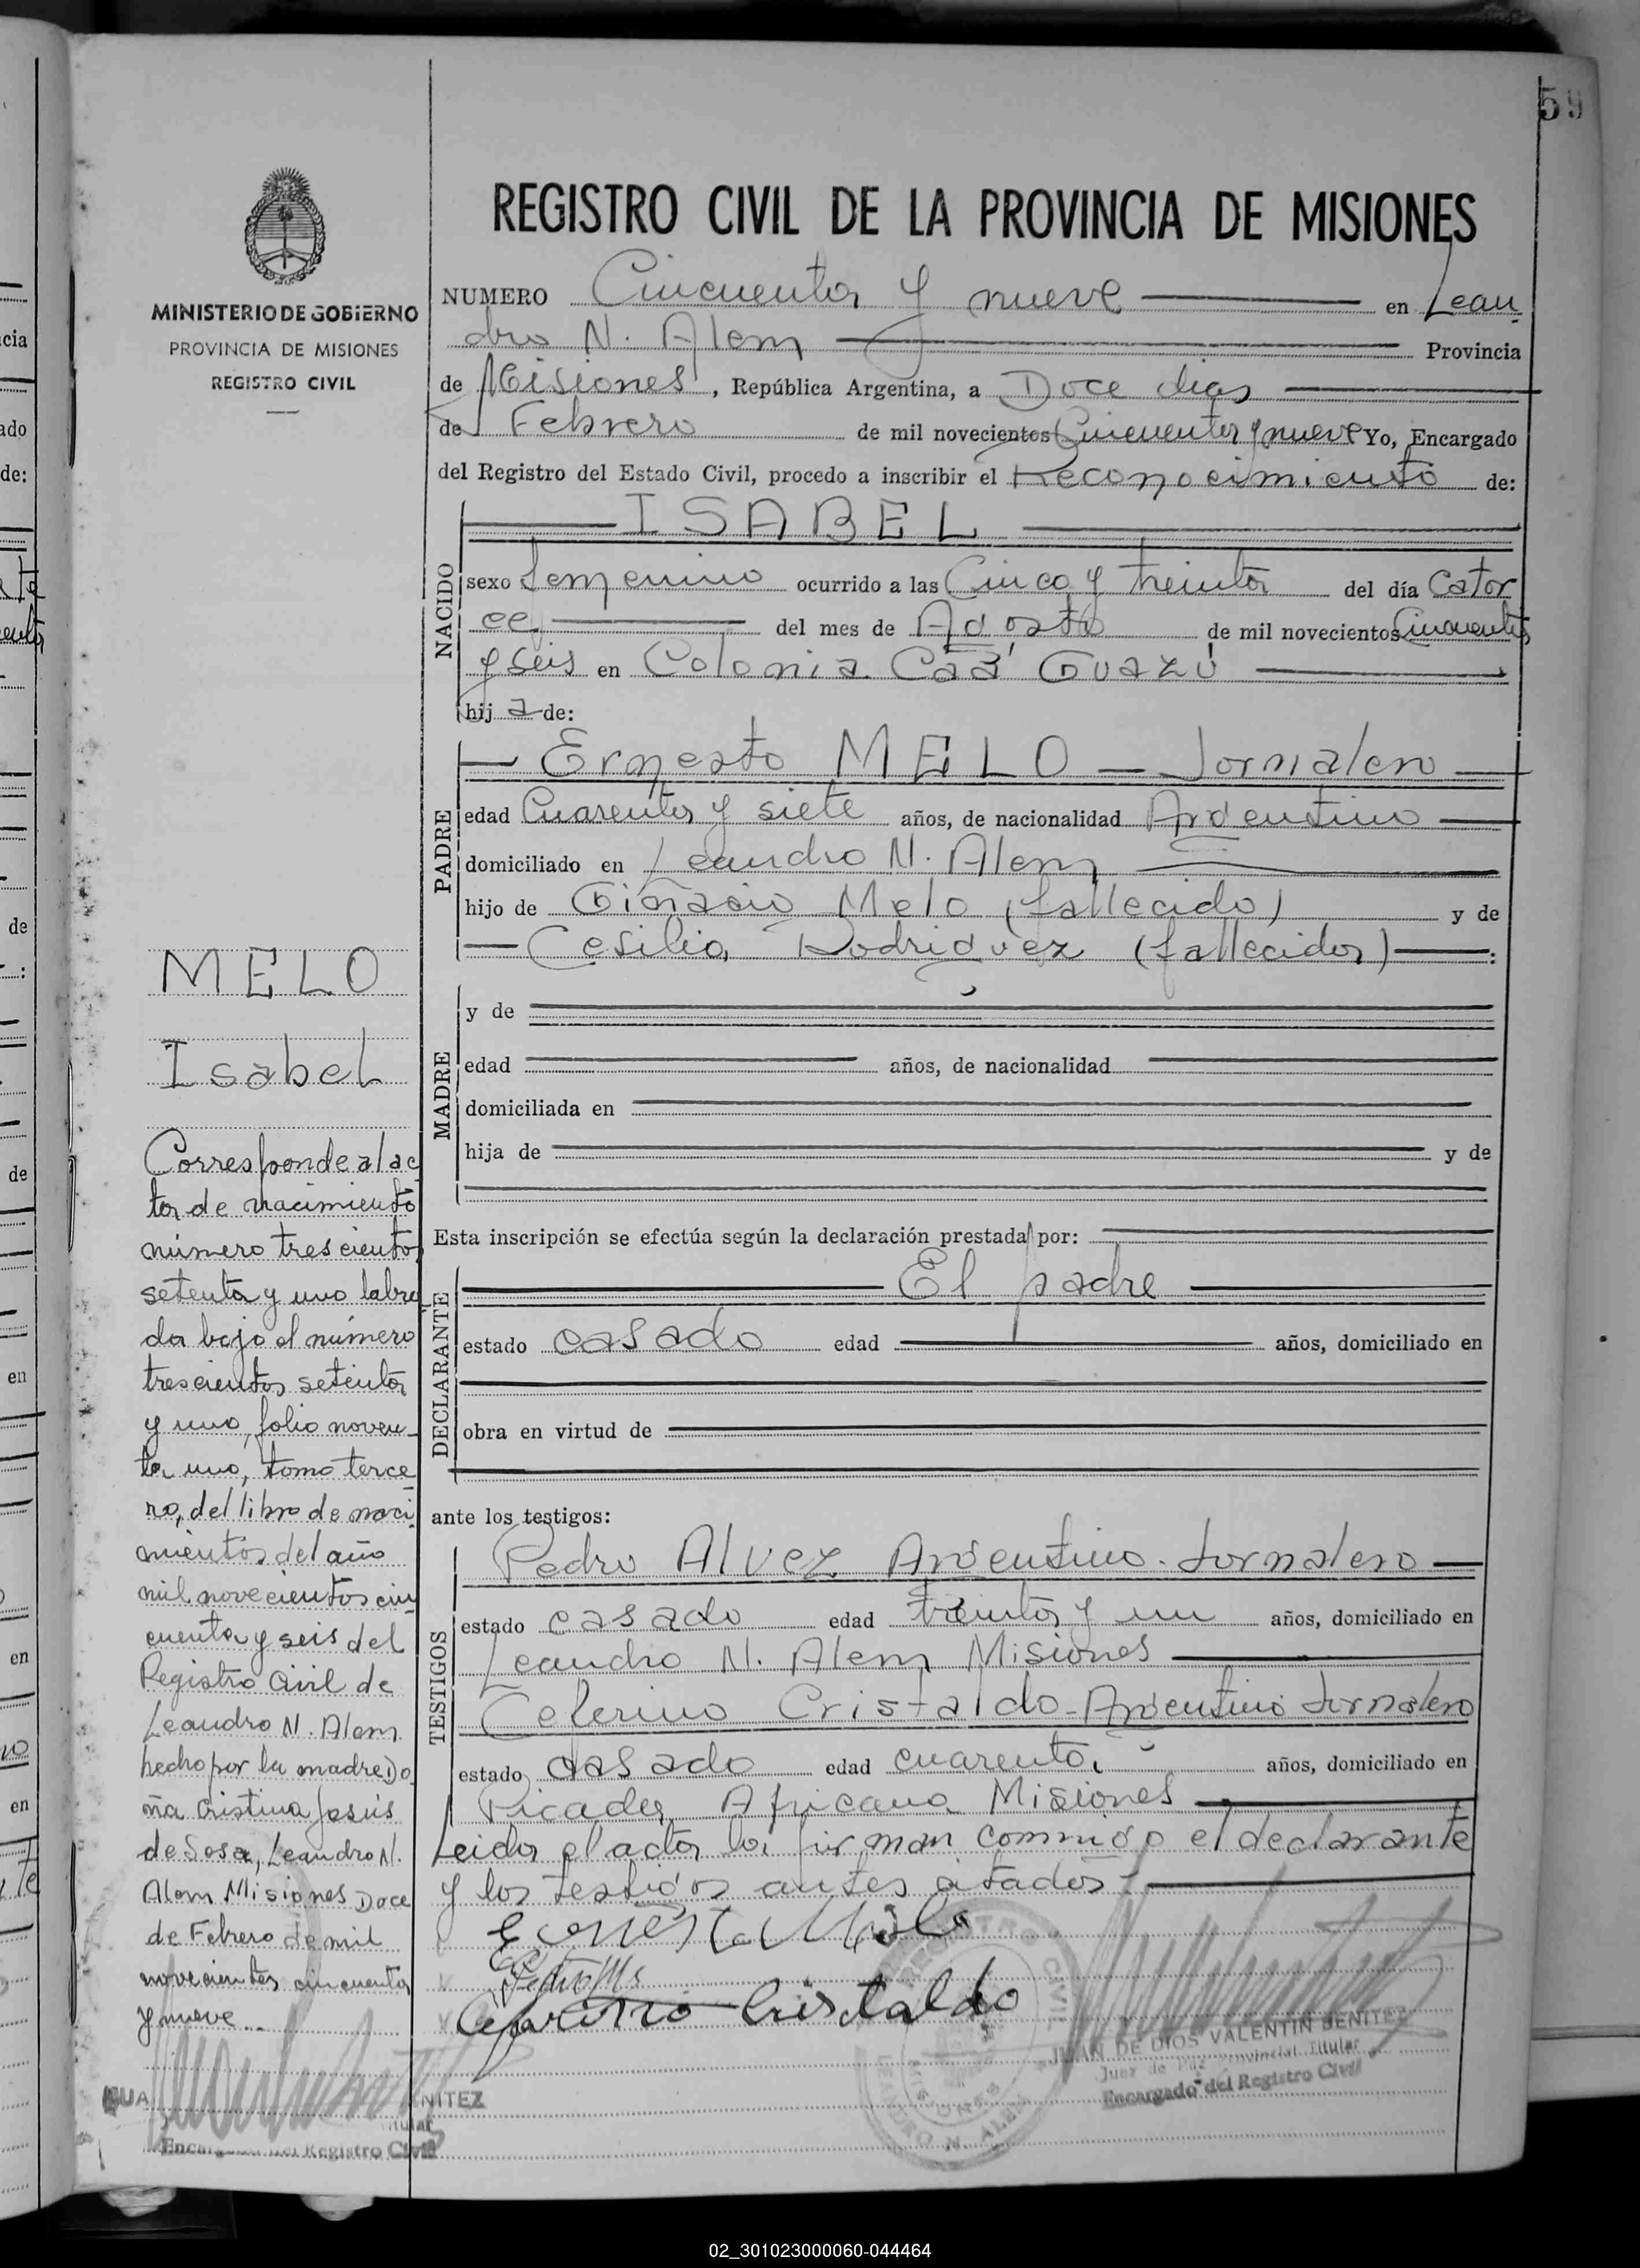 59
REGISTRO CIVIL DE LA PROVINCIA DE MISIONES
MINISTERIO DE GOBIERNO
PROVINCIA DE MISIONES
REGISTRO CIVIL
NUMERO Cincuenta y nueve en Lean
dro N. Alem Provincia
de Misiones, República Argentina, a Doce dias
de Febrero de mil novecientos Cincuenta y nueve Yo, Encargado
del Registro del Estado Civil, procedo a inscribir el Reconocimiento de:
NACIDO
ISABEL
sexo femenino ocurrido a las Cinco y treinta del día Cator
ce del mes de Agosto de mil novecientos Cincuenta
y seis en Colonia Caá Guazú
hija de:
PADRE
Ernesto MELO - Jornalero
edad Cuarenta y siete años, de nacionalidad Argentino
domiciliado en Leandro N. Alem
hijo de Giñasio Melo (fallecido) y de
Cesilia Rodriguez (fallecida)
MADRE
y de
edad años, de nacionalidad
domiciliada en
hija de y de
Esta inscripción se efectúa según la declaración prestada por:
DECLARANTE
El padre
estado casado edad años, domiciliado en
obra en virtud de
ante los testigos:
TESTIGOS
Pedro Alvez Argentino. Jornalero
estado casado edad treinta y un años, domiciliado en
Leandro N. Alem Misiones
Ceferino Cristaldo - Argentino Jornalero
estado casado edad cuarenta años, domiciliado en
Picada Africana Misiones
Leida el acta la firman conmigo el declarante
y los testigos antes citados.
Ceferino Cristaldo
REGISTRO CIVIL
MISIONES
LEANDRO N. ALEM
JUAN DE DIOS VALENTIN BENITEZ
Juez de Paz Provincial Titular
Encargado del Registro Civil
MELO
Isabel
Corresponde al ac
ta de nacimiento
número trescientos
setenta y uno labra
da bajo el número
trescientos setenta
y uno, folio noven
ta uno, tomo terce
ro, del libro de naci
mientos del año
mil novecientos cin
cuenta y seis del
Registro Civil de
Leandro N. Alem
hecho por la madre Do
ña Cristina Jesús
de Sosa, Leandro N.
Alem Misiones Doce
de Febrero de mil
novecientos cincuenta
y nueve...
NITEZ
Titular
Encargado del Registro Civil
02_301023000060-044464